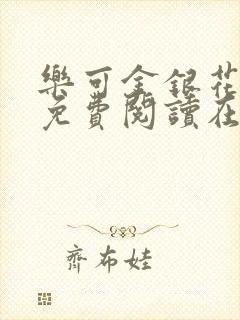 樂可金銀花
免費閱讀在
齊布娃